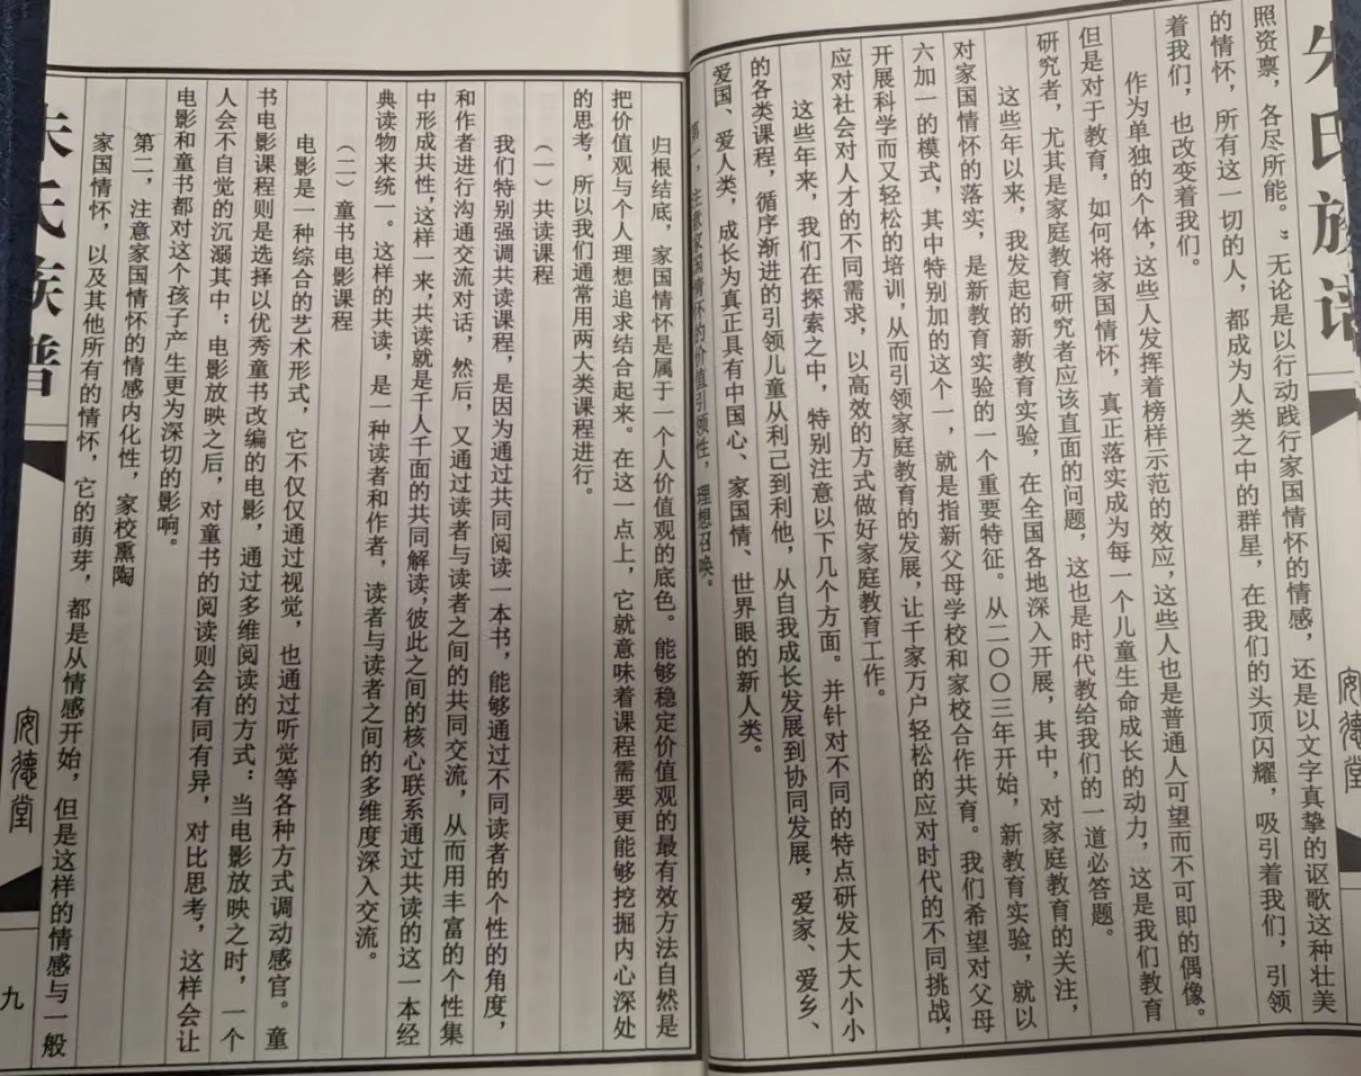 朱氏族谱
安德堂
照资禀，各尽所能。”无论是以行动践行家国情怀的情感，还是以文字真挚的讴歌这种壮美
的情怀，所有这一切的人，都成为人类之中的群星，在我们的头顶闪耀，吸引着我们，引领
着我们，也改变着我们。
作为单独的个体，这些人发挥着榜样示范的效应，这些人也是普通人可望而不可即的偶像。
但是对于教育，如何将家国情怀，真正落实成为每一个儿童生命成长的动力，这是我们教育
研究者，尤其是家庭教育研究者应该直面的问题，这也是时代教给我们的一道必答题。
这些年以来，我发起的新教育实验，在全国各地深入开展，其中，对家庭教育的关注，
对家国情怀的落实，是新教育实验的一个重要特征。从二〇〇三年开始，新教育实验，就以
六加一的模式，其中特别加的这个一，就是指新父母学校和家校合作共育。我们希望对父母
开展科学而又轻松的培训，从而引领家庭教育的发展，让千家万户轻松的应对时代的不同挑战，
应对社会对人才的不同需求，以高效的方式做好家庭教育工作。
这些年来，我们在探索之中，特别注意以下几个方面。并针对不同的特点研发大大小小
的各类课程，循序渐进的引领儿童从利己到利他，从自我成长发展到协同发展，爱家、爱乡、
爱国、爱人类，成长为真正具有中国心、家国情、世界眼的新人类。
第一，注意家国情怀的价值引领性，理想召唤。
归根结底，家国情怀是属于一个人价值观的底色。能够稳定价值观的最有效方法自然是
把价值观与个人理想追求结合起来。在这一点上，它就意味着课程需要更能够挖掘内心深处
的思考，所以我们通常用两大类课程进行。
（一）共读课程
我们特别强调共读课程，是因为通过共同阅读一本书，能够通过不同读者的个性的角度，
和作者进行沟通交流对话，然后，又通过读者与读者之间的共同交流，从而用丰富的个性集
中形成共性，这样一来，共读就是千人千面的共同解读，彼此之间的核心联系通过共读的这一本经
典读物来统一。这样的共读，是一种读者和作者，读者与读者之间的多维度深入交流。
（二）童书电影课程
电影是一种综合的艺术形式，它不仅仅通过视觉，也通过听觉等各种方式调动感官。童
书电影课程则是选择以优秀童书改编的电影，通过多维阅读的方式：当电影放映之时，一个
人会不自觉的沉溺其中；电影放映之后，对童书的阅读则会有同有异，对比思考，这样会让
电影和童书都对这个孩子产生更为深切的影响。
第二，注意家国情怀的情感内化性，家校熏陶
家国情怀，以及其他所有的情怀，它的萌芽，都是从情感开始，但是这样的情感与一般
朱氏族谱
安德堂
九